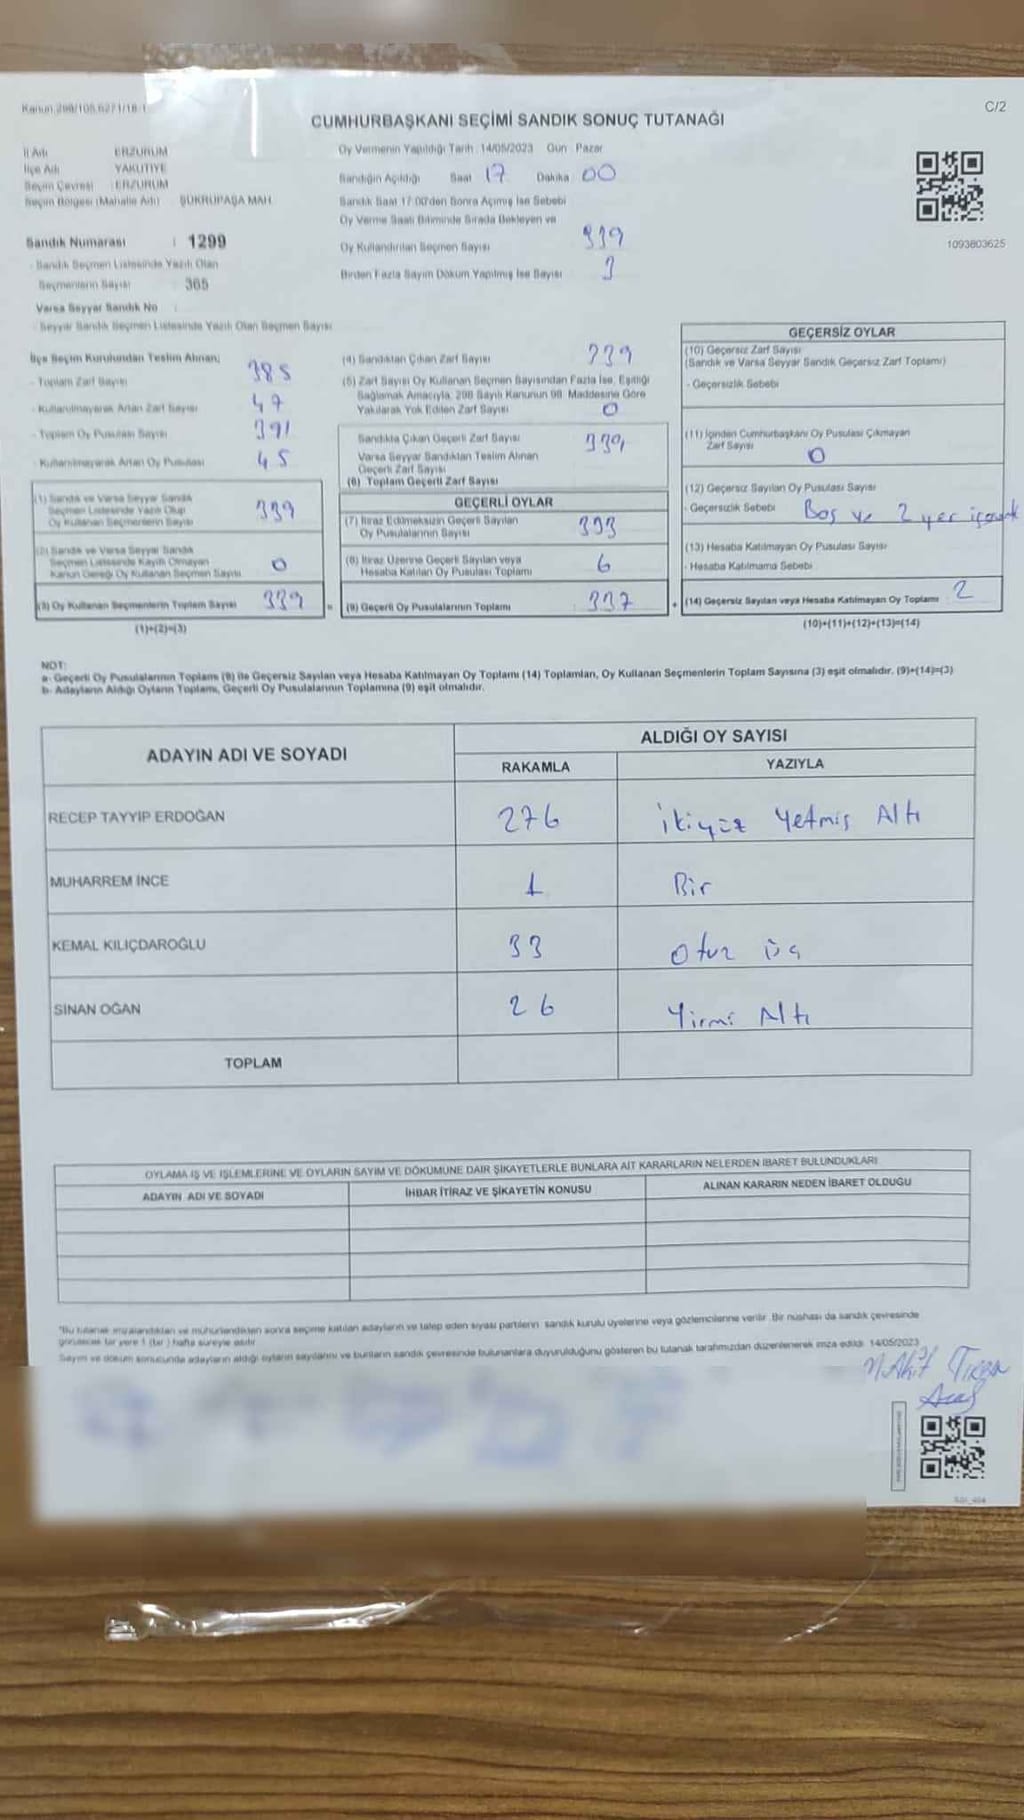 Kanun 298/105.6271/18-1
C/2
CUMHURBAŞKANI SEÇİMİ SANDIK SONUÇ TUTANAĞI
İl Adı : ERZURUM
İlçe Adı : YAKUTİYE
Seçim Çevresi : ERZURUM
Seçim Bölgesi (Mahalle Adı) : ŞÜKRÜPAŞA MAH.
Sandık Numarası : 1299
- Sandık Seçmen Listesinde Yazılı Olan
Seçmenlerin Sayısı : 365
Varsa Seyyar Sandık No :
- Seyyar Sandık Seçmen Listesinde Yazılı Olan Seçmen Sayısı
Oy Vermenin Yapıldığı Tarih : 14/05/2023 Gün : Pazar
Sandığın Açıldığı Saat 17 Dakika 00
Sandık Saat 17:00'den Sonra Açılmış İse Sebebi
Oy Verme Saati Bitiminde Sırada Bekleyen ve
Oy Kullandırılan Seçmen Sayısı 339
Birden Fazla Sayım Döküm Yapılmış İse Sayısı
1093803625
İlçe Seçim Kurulundan Teslim Alınan;
- Toplam Zarf Sayısı 385
- Kullanılmayarak Artan Zarf Sayısı 47
- Toplam Oy Pusulası Sayısı 391
- Kullanılmayarak Artan Oy Pusulası 45
(1) Sandık ve Varsa Seyyar Sandık
Seçmen Listesinde Yazılı Olup
Oy Kullanan Seçmenlerin Sayısı 339
(2) Sandık ve Varsa Seyyar Sandık
Seçmen Listesinde Kayıtlı Olmayan
Kanun Gereği Oy Kullanan Seçmen Sayısı 0
(3) Oy Kullanan Seçmenlerin Toplam Sayısı 339 =
(1)+(2)=(3)
(4) Sandıktan Çıkan Zarf Sayısı 339
(5) Zarf Sayısı Oy Kullanan Seçmen Sayısından Fazla İse, Eşitliği
Sağlamak Amacıyla, 298 Sayılı Kanunun 98. Maddesine Göre
Yakılarak Yok Edilen Zarf Sayısı 0
Sandıkta Çıkan Geçerli Zarf Sayısı 339
Varsa Seyyar Sandıktan Teslim Alınan
Geçerli Zarf Sayısı
(6) Toplam Geçerli Zarf Sayısı
GEÇERLİ OYLAR
(7) İtiraz Edilmeksizin Geçerli Sayılan
Oy Pusulalarının Sayısı : 333
(8) İtiraz Üzerine Geçerli Sayılan veya
Hesaba Katılan Oy Pusulası Toplamı : 6
(9) Geçerli Oy Pusulalarının Toplamı : 337 +
GEÇERSİZ OYLAR
(10) Geçersiz Zarf Sayısı
(Sandık ve Varsa Seyyar Sandık Geçersiz Zarf Toplamı)
- Geçersizlik Sebebi
(11) İçinden Cumhurbaşkanı Oy Pusulası Çıkmayan
Zarf Sayısı 0
(12) Geçersiz Sayılan Oy Pusulası Sayısı
- Geçersizlik Sebebi Boş ve 2 yer
(13) Hesaba Katılmayan Oy Pusulası Sayısı
- Hesaba Katılmama Sebebi
(14) Geçersiz Sayılan veya Hesaba Katılmayan Oy Toplamı 2
(10)+(11)+(12)+(13)=(14)
NOT:
a- Geçerli Oy Pusulalarının Toplamı (9) ile Geçersiz Sayılan veya Hesaba Katılmayan Oy Toplamı (14) Toplamları, Oy Kullanan Seçmenlerin Toplam Sayısına (3) eşit olmalıdır. (9)+(14)=(3)
b- Adayların Aldığı Oyların Toplamı, Geçerli Oy Pusulalarının Toplamına (9) eşit olmalıdır.
ADAYIN ADI VE SOYADI ALDIĞI OY SAYISI
RAKAMLA YAZIYLA
RECEP TAYYİP ERDOĞAN 276 İkiyüz Yetmiş Altı
MUHARREM İNCE 1 Bir
KEMAL KILIÇDAROĞLU 33 Otuz üç
SİNAN OĞAN 26 Yirmi Altı
TOPLAM
OYLAMA İŞ VE İŞLEMLERİNE VE OYLARIN SAYIM VE DÖKÜMÜNE DAİR ŞİKAYETLERLE BUNLARA AİT KARARLARIN NELERDEN İBARET BULUNDUKLARI
ADAYIN ADI VE SOYADI İHBAR İTİRAZ VE ŞİKAYETİN KONUSU ALINAN KARARIN NEDEN İBARET OLDUĞU
*Bu tutanak imzalandıktan ve mühürlendikten sonra seçime katılan adayların ve talep eden siyasi partilerin sandık kurulu üyelerine veya gözlemcilerine verilir. Bir nüshası da sandık çevresinde
görülecek bir yere 1 (bir) hafta süreyle asılır.
Sayım ve döküm sonucunda adayların aldığı oyların sayılarını ve bunların sandık çevresinde bulunanlara duyurulduğunu gösteren bu tutanak tarafımızdan düzenlenerek imza edildi. 14/05/2023